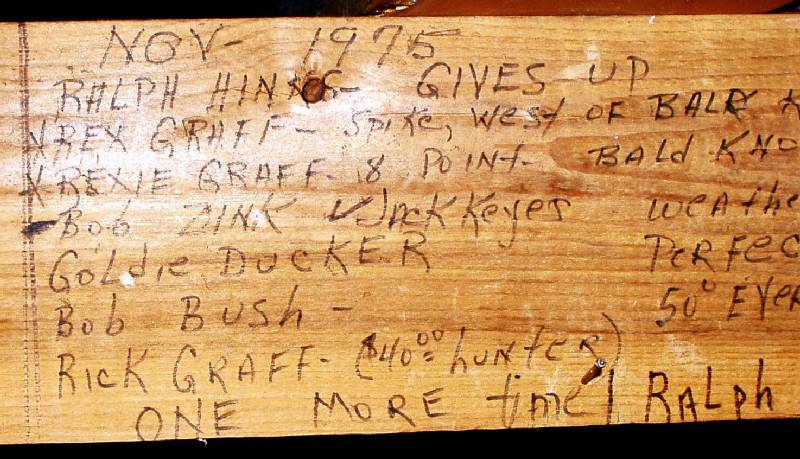 NOV- 1975
RALPH HINKS- GIVES UP
XREX GRAFF- SPIKE, WEST OF BALD K
XREXIE GRAFF- 8 POINT- BALD KNO
BOB ZINK JACK KEYES WEATHE
GOLDIE DUCKER PERFEC
BOB BUSH- 50° EVER
RICK GRAFF- ($40⁰⁰ HUNTER)
ONE MORE TIME! RALPH